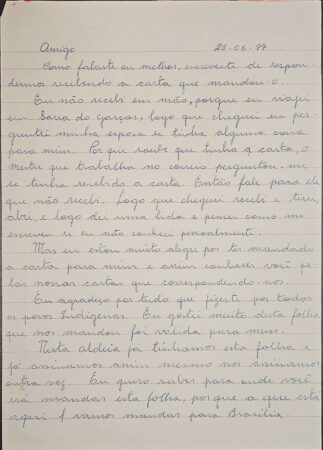 Amigo 25-06-87
Como falaste ou melhor, escreveste de respon-
dermos recebendo a carta que mandou-o.
Eu não recebi em mão, porque eu viajei
em Barra do Garças, logo que cheguei eu per-
guntei minha esposa se tinha alguma coisa
para mim. Por que soube que tinha a carta, o
mestre que trabalha no correio perguntou-me
se tinha recebido a carta. Então falei para ele
que não recebi. Logo que cheguei recebi e tirei,
abri, e logo dei uma lida e pensei como me
escreveu se eu não conheci pessoalmente.
Mas eu estou muito alegre por ter mandado
a carta para mim e assim conhecer você pe-
las nossas cartas que correspondendo-nos.
Eu agradeço por tudo que fizeste por todos
os povos Indígenas. Eu gostei muito desta folha
que nos mandou foi válida para mim.
Nesta aldeia já tínhamos esta folha e
já assinamos assim mesmo nós assinamos
outra vez. Eu quero saber para onde você
irá mandar esta folha, porque a que está
aqui vamos mandar para Brasília.